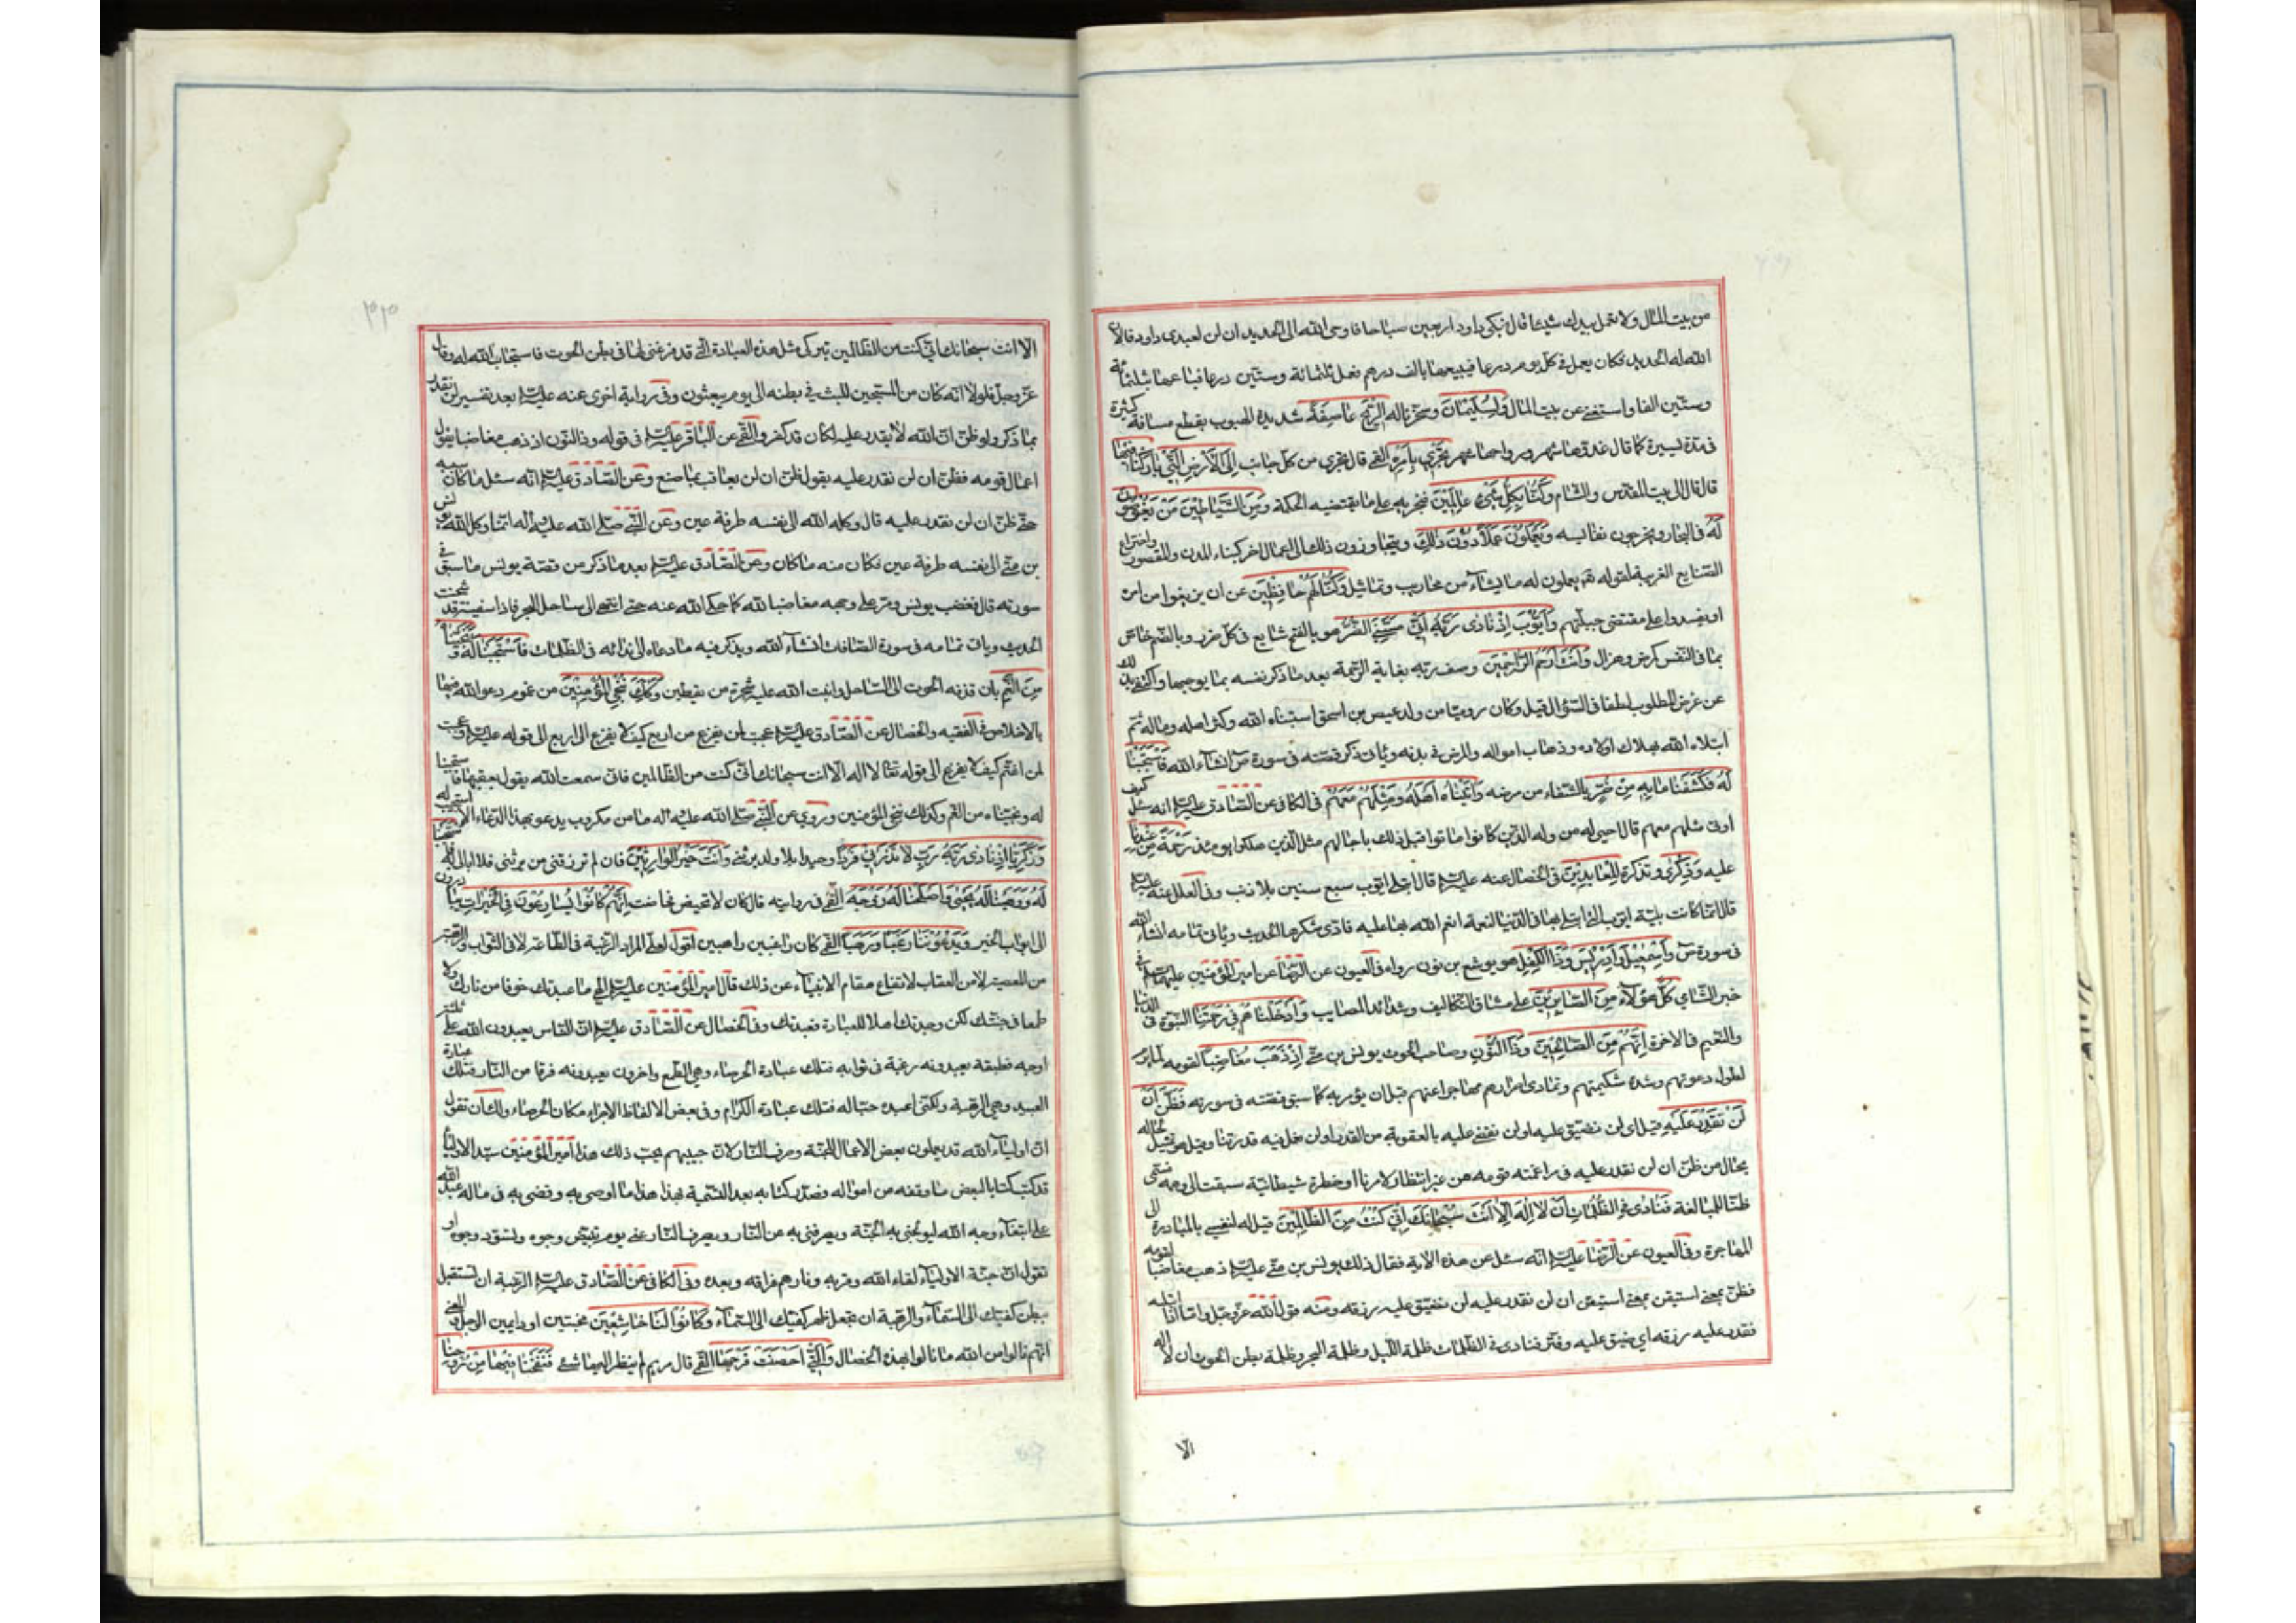 من بيت المال ولا تعمل بيدك شيئا قال فبكى داود اربعين صباحا فاوحى الله الى الحديد ان لن لعبدى داود فالان
الله له الحديد فكان يعمل فى كل يوم درعا فيبيعها بالف درهم فعمل ثلثمائة وستين درعا فباعها بثلثمائة
وستين الفا واستغنى عن بيت المال وَلِسُلَيْمَانَ وسخرنا له الرِّيحَ عَاصِفَةً شديدة الهبوب يقطع مسافة كثيرة
فى مدة يسيرة كما قال غدوها شهر ورواحها شهر تَجْرِي بِأَمْرِهِ القمى قال تجرى من كل جانب إِلَى الْأَرْضِ الَّتِي بَارَكْنَا فِيهَا
قال قال الى بيت المقدس والشام وَكُنَّا بِكُلِّ شَيْءٍ عَالِمِينَ فنجريه على ما يقتضيه الحكمة وَمِنَ الشَّيَاطِينِ مَنْ يَغُوصُونَ
لَهُ فى البحار ويخرجون نفائسه وَيَعْمَلُونَ عَمَلاً دُونَ ذَلِكَ ويتجاوزون ذلك الى اعمال اخر كبناء المدن والقصور واختراع
الصنايع الغريبة لقوله تعم يعملون له ما يشاء من محاريب وتماثيل وَكُنَّا لَهُمْ حَافِظِينَ عن ان يزيغوا من امره
او يفسدوا على مقتضى جبلتهم وَأَيُّوبَ إِذْ نَادَى رَبَّهُ أَنِّي مَسَّنِيَ الضُّرُّ هو بالفتح شايع فى كل ضرر وبالضم خاص
بما فى النفس كمرض وهزال وَأَنْتَ أَرْحَمُ الرَّاحِمِينَ وصف ربه بغاية الرحمة بعد ما ذكر نفسه بما يوجبها واكتفى بذلك
عن عرض المطلوب لطفا فى السؤال قيل وكان روميا من ولد عيص بن اسحق استنباه الله وكثر اهله وماله ثم
ابتلاه الله بهلاك اولاده وذهاب امواله والمرض فى بدنه وياتى ذكر قصته فى سورة ص انشاء الله فَاسْتَجَبْنَا
لَهُ فَكَشَفْنَا مَا بِهِ مِنْ ضُرٍّ بالشفاء من مرضه وَآتَيْنَاهُ أَهْلَهُ وَمِثْلَهُمْ مَعَهُمْ فى الكافى عن الصادق عليه السلم انه سئل كيف
اوتى مثلهم معهم قال احيى له من ولده الذين كانوا ماتوا قبل ذلك باجالهم مثل الذين هلكوا يومئذ رَحْمَةً مِنْ عِنْدِنَا
عليه وَذِكْرَى وتذكرة لِلْعَابِدِينَ فى الخصال عنه عليه السلم قال ابتلى ايوب سبع سنين بلا ذنب وفى العلل عنه عليه السلم
قال انما كانت بلية ايوب التى ابتلى بها فى الدنيا لنعمة انعم الله بها عليه فادى شكرها الحديث وياتى تمامه انشاء الله
فى سورة ص وَإِسْمَعِيلَ وَإِدْرِيسَ وَذَا الْكِفْلِ هو يوشع بن نون رواه فى العيون عن الرضا عن امير المؤمنين عليهما السلم فى
خبر الشامي كُلٌّ هؤلاء مِنَ الصَّابِرِينَ على مشاق التكاليف وشدائد المصايب وَأَدْخَلْنَاهُمْ فِي رَحْمَتِنَا النبوة فى الدنيا
والنعيم فى الاخرة إِنَّهُمْ مِنَ الصَّالِحِينَ وَذَا النُّونِ وصاحب الحوت يونس بن متى إِذْ ذَهَبَ مُغَاضِبًا لقومه لما برم
لطول دعوتهم وشدة شكيمتهم وتمادى اصرارهم مهاجرا عنهم قبل ان يؤمر به كما سبق قصته فى سورته فَظَنَّ أَنْ
لَنْ نَقْدِرَ عَلَيْهِ قيل اى لن نضيق عليه او لن نقضى عليه بالعقوبة من القدر او لن نعمل فيه قدرتنا وقيل هو تمثيل لحاله
بحال من ظن ان لن نقدر عليه فى مراغمته قومه من غير انتظار لامرنا او خطرة شيطانية سبقت الى وهمه فسمى
ظنا للمبالغة فَنَادَى فِي الظُّلُمَاتِ أَنْ لَا إِلَهَ إِلَّا أَنْتَ سُبْحَانَكَ إِنِّي كُنْتُ مِنَ الظَّالِمِينَ قيل له لنفسي بالمبادرة الى
المهاجرة وفى العيون عن الرضا عليه السلم انه سئل عن هذه الاية فقال ذلك يونس بن متى عليه السلم ذهب مغاضبا لقومه
فظن بمعنى استيقن بمعنى استيقن ان لن نقدر عليه لن نضيق عليه رزقه ومنه قول الله عز وجل واما اذا ما ابتليه
فقدر عليه رزقه اي ضيق عليه وقتر فنادى فى الظلمات ظلمة الليل وظلمة البحر وظلمة بطن الحوت ان لا اله
الا
٣٣
الا انت سبحانك انى كنت من الظالمين بتركى مثل هذه العبادة التى قد فرغتنى لها فى بطن الحوت فاستجاب الله له وقال
عز وجل فلولا انه كان من المسبحين للبث في بطنه الى يوم يبعثون وفى رواية اخرى عنه عليه السلم بعد تفسير لن نقدر
بما ذكر ولو ظن ان الله لا يقدر عليه لكان قد كفر والقمى عن الباقر عليه السلم فى قوله وذ النون اذ ذهب مغاضبا يقول
اعمال قومه فظن ان لن نقدر عليه يقول ظن ان لن يعاقب بما صنع وعن الصادق عليه السلم انه سئل ما كان سببه
حتى ظن ان لن نقدر عليه قال وكله الله الى نفسه طرفة عين وعن النبي صلى الله عليه وآله انما وكل الله يونس
بن متى الى نفسه طرفة عين فكان منه ما كان وعن الصادق عليه السلم بعد ما ذكر من قصة يونس ما سبق فى
سورته قال فغضب يونس ومر على وجهه مغاضبا لله كما حكى الله عنه حتى انتهى الى ساحل البحر فاذا سفينة قد شحنت
الحديث وياتى تمامه فى سورة الصافات انشاء الله ويذكر فيه ما دعاه الى ندائه فى الظلمات فَاسْتَجَبْنَا لَهُ وَنَجَّيْنَاهُ
مِنَ الْغَمِّ بان قذفه الحوت الى الساحل وانبت الله عليه شجرة من يقطين وَكَذَلِكَ نُنْجِي الْمُؤْمِنِينَ من غموم دعوا الله فيها
بالاخلاص فى الفقيه والخصال عن الصادق عليه السلم عجبت لمن يفزع من اربع كيف لا يفزع الى اربع الى قوله عليه السلم وعجبت
لمن اغتم كيف لا يفزع الى قوله تعالى لا اله الا انت سبحانك انى كنت من الظالمين فانى سمعت الله يقول بعقبها فاستجبنا
له ونجيناه من الغم وكذلك ننجى المؤمنين وروي عن النبي صلى الله عليه وآله ما من مكروب يدعو بهذا الدعاء الا استجيب له
وَزَكَرِيَّا إِذْ نَادَى رَبَّهُ رَبِّ لَا تَذَرْنِي فَرْدًا وحيدا بلا ولد يرثنى وَأَنْتَ خَيْرُ الْوَارِثِينَ فان لم ترزقنى من يرثنى فلا ابالى به فَاسْتَجَبْنَا
لَهُ وَوَهَبْنَا لَهُ يَحْيَى وَأَصْلَحْنَا لَهُ زَوْجَهُ القمى فى روايته قال كان لا تحيض فحاضت إِنَّهُمْ كَانُوا يُسَارِعُونَ فِي الْخَيْرَاتِ يبادرون
الى ابواب الخير وَيَدْعُونَنَا رَغَبًا وَرَهَبًا القمى كان راغبين راهبين اقول لعل المراد الرغبة فى الطاعة لا فى الثواب والرهبة
من المعصية لا من العقاب لارتفاع مقام الانبياء عن ذلك قال امير المؤمنين عليه السلم الهى ما عبدتك خوفا من نارك ولا
طمعا فى جنتك لكن وجدتك اهلا للعبادة فعبدتك وفى الخصال عن الصادق عليه السلم ان الناس يعبدون الله على ثلثة
اوجه فطبقة يعبدونه رغبة فى ثوابه فتلك عبادة الحرصاء وهي الطمع واخرون يعبدونه فرقا من النار فتلك عبادة
العبيد وهي الرهبة ولكنى اعبده حبا له فتلك عبادة الكرام وفى بعض الالفاظ الاجراء مكان الحرصاء ولك ان تقول
ان اولياء الله قد يعملون بعض الاعمال للجنة وصرف النار لان حبيبهم يحب ذلك هذا امير المؤمنين سيد الاولياء
قد كتب كتابا لبعض ما وقفه من امواله فصدر كتابه بعد التسمية بهذا هذا ما اوصى به وقضى به فى ماله عبد الله
على ابتغاء وجه الله ليولجنى به الجنة ويصرفنى به عن النار ويصرف النار عنى يوم تبيض وجوه وتسود وجوه او
نقول ان جنة الاولياء لقاء الله وقربه ونارهم فراقه وبعده وفى الكافى عن الصادق عليه السلم الرغبة ان تستقبل
ببطن كفيك الى السماء والرهبة ان تجعل ظهر كفيك الى السماء وَكَانُوا لَنَا خَاشِعِينَ مخبتين او دايمين الوجل والمعنى
انهم نالوا من الله ما نالوا بهذه الخصال وَالَّتِي أَحْصَنَتْ فَرْجَهَا القمى قال مريم لم ينظر اليها شئ فَنَفَخْنَا فِيهَا مِنْ رُوحِنَا